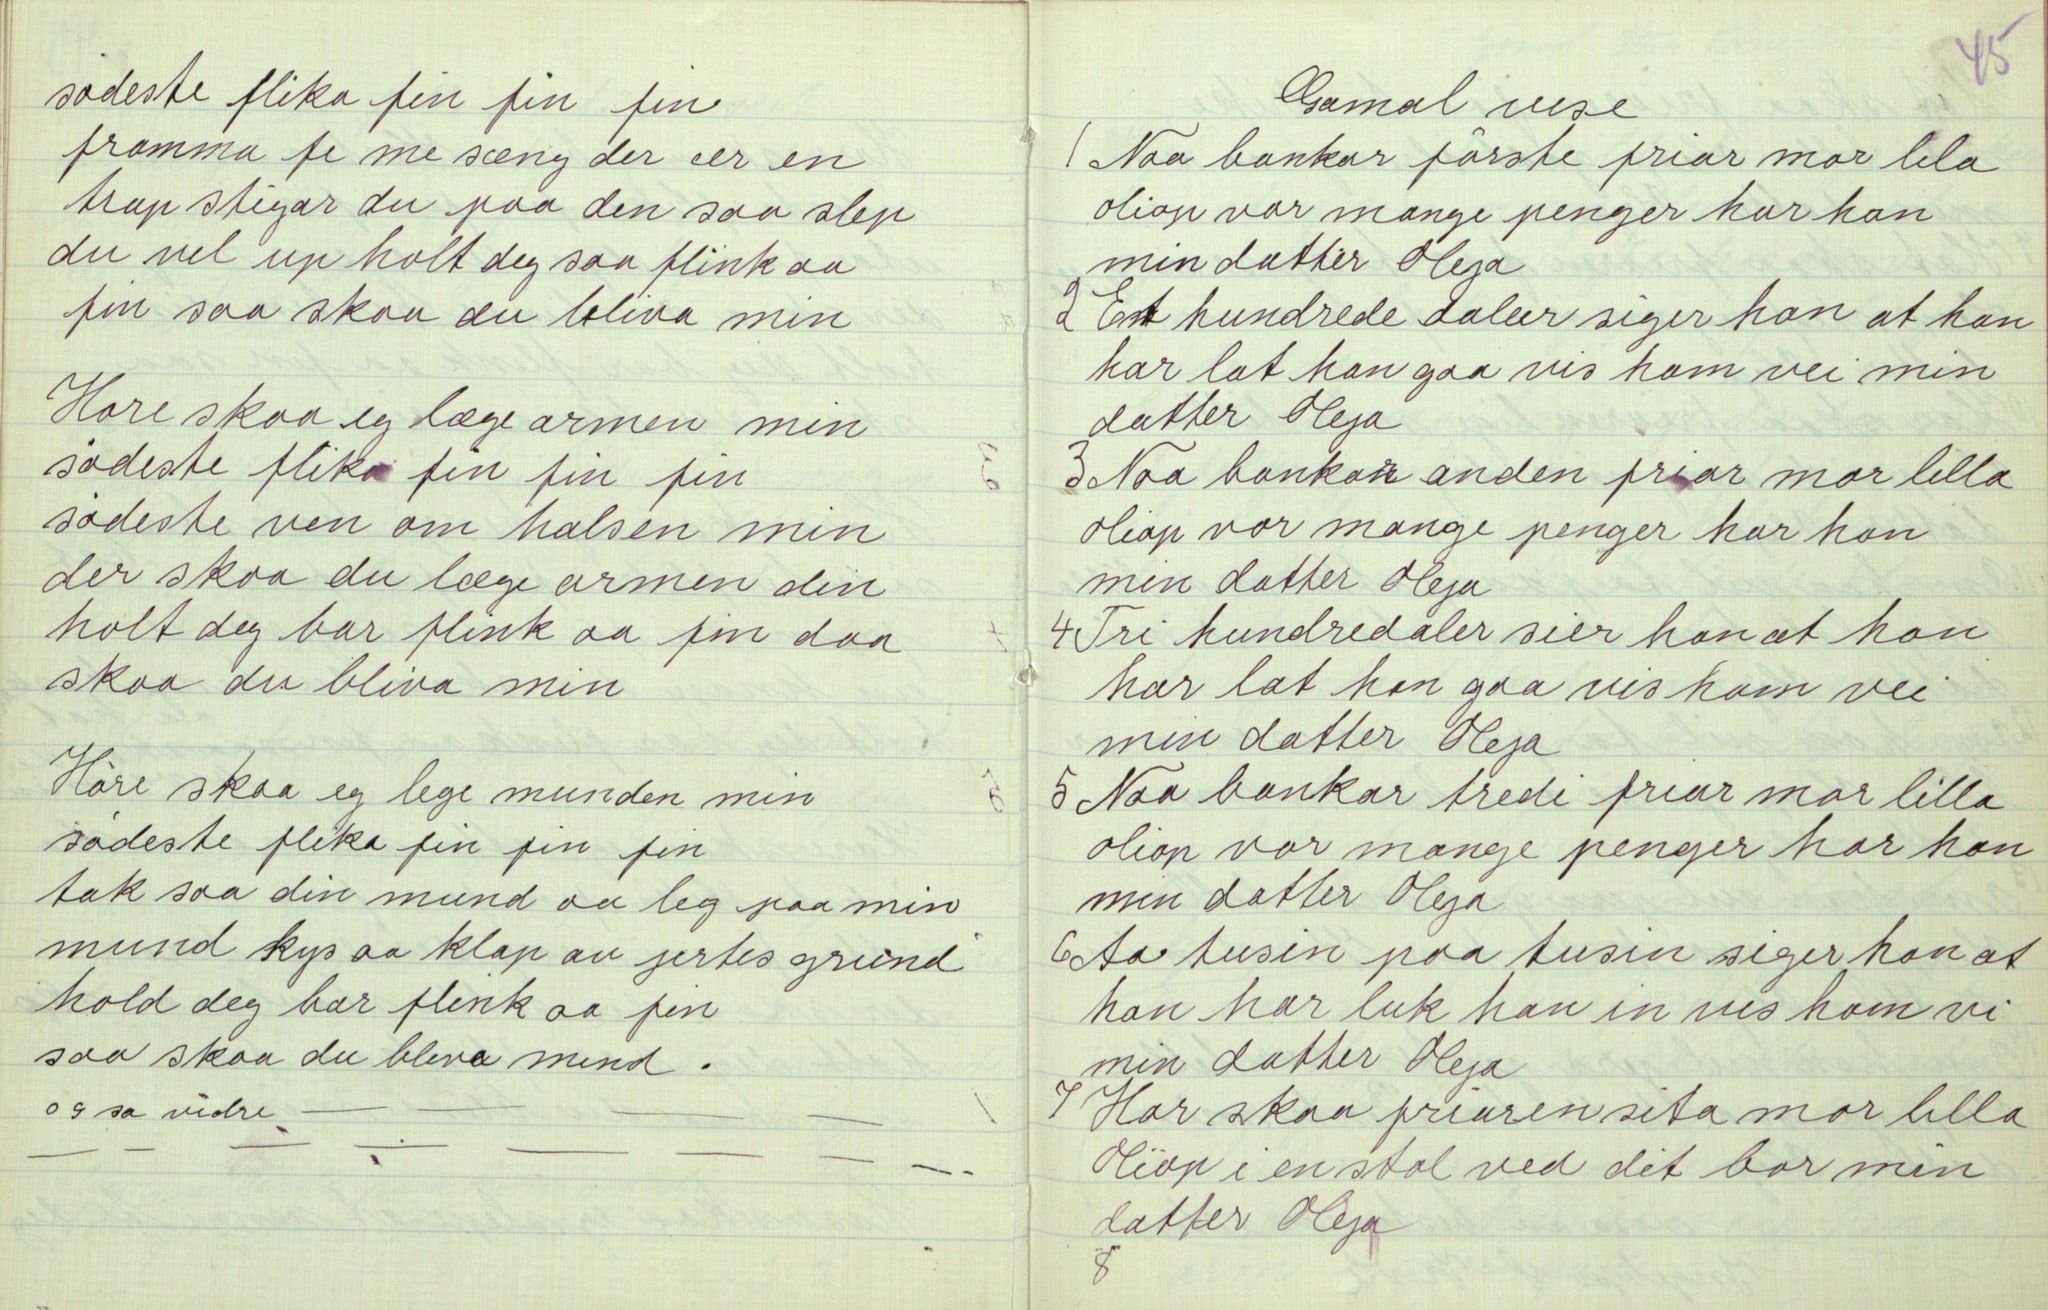 sødeste flika fin fin fin
framma fe me sæng der er en
trap stigar du paa den saa slep
du vel up holt deg saa flink aa
fin saa skaa du bliva min
Hore skaa eg læge armen min
sødeste flika fin fin fin
sødeste ven om halsen min
der skaa du læge armen din
holt deg bar flink aa fin daa
skaa du bliva min
Høre skaa eg lege munden min
sødeste flika fin fin fin
tak saa din mund aa leg paa min
mund kys aa klap au jertes grund
hold deg bar flink aa fin
saa skaa du bleva mend.
og sa vidre
45
Gamal vise
1 Naa bankar förste friar mor lila
oliop vor mange penger har han
min datter Oleja
2 Ent hundrede daleer siger han at han
har lat han gaa vis ham vei min
datter Oleja
3 Naa bankar anden friar mor lilla
oliop vor mange penger har han
min datter Oleja
4 Tri hundredaler sier han at han
har lat han gaa vis ham vei
min datter Oleja
5 Naa bankar tredi friar mor lilla
oliop vor mange penger har han
min datter Oleja
6 Aa tusin paa tusin siger han at
han har luk han in ves ham vi
min datter Oleja
7 Hor skaa friaren sita mor lilla
Oliop i en stol ved dit bor min
datter Oleja
8